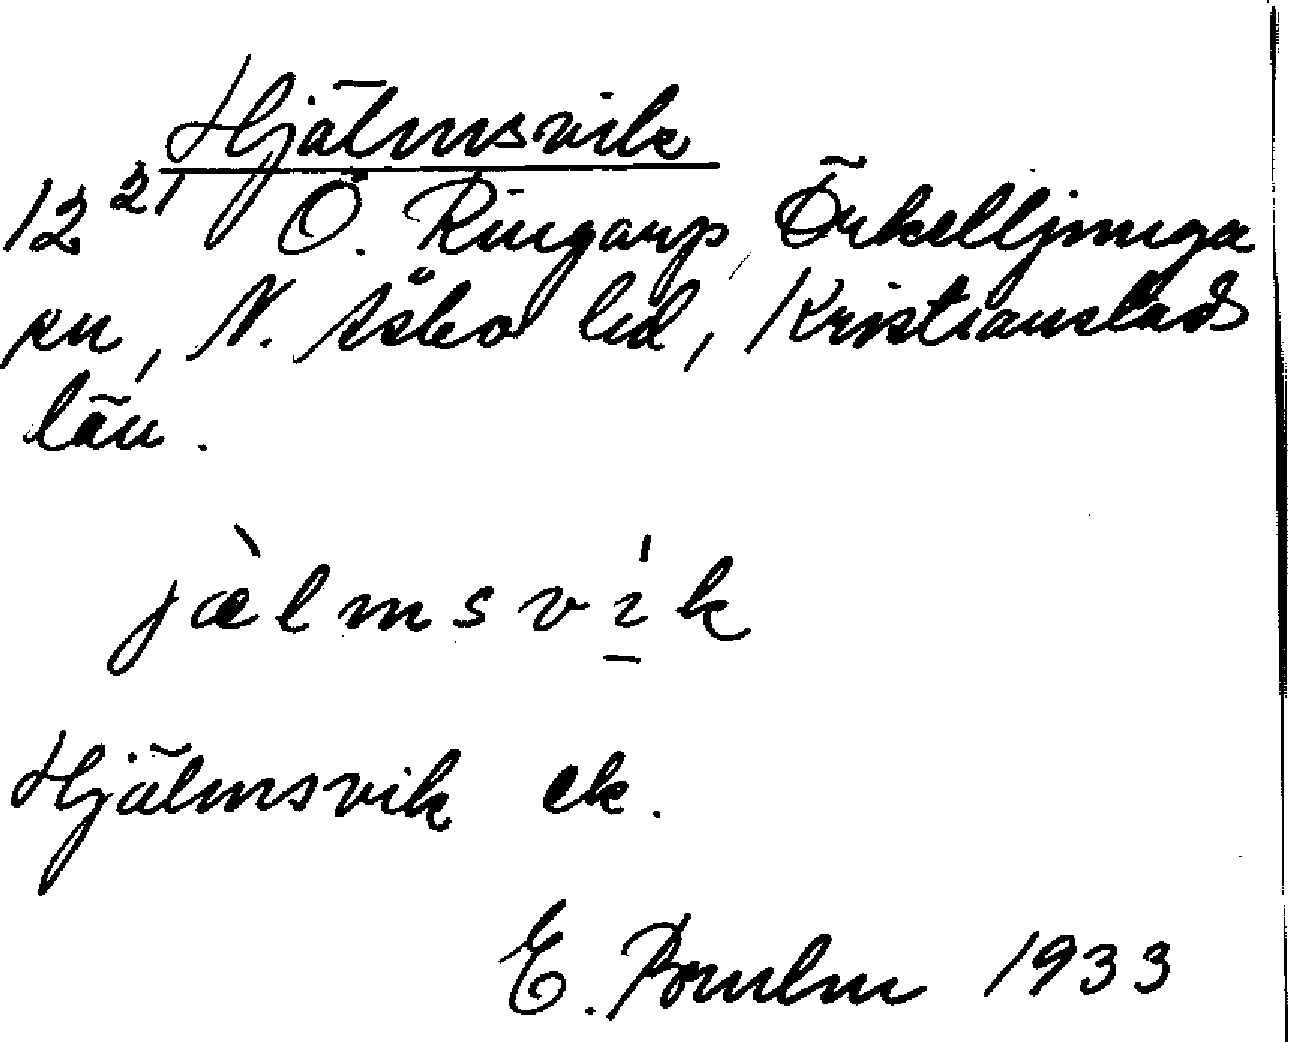 Hjälmsvik
12 21 Ö. Ringarp, Örkelljunga
sn, N. Åsbo hd, Kristianstads
län.
jæ̀lmsvík
Hjälmsvik ek.
E. 1933